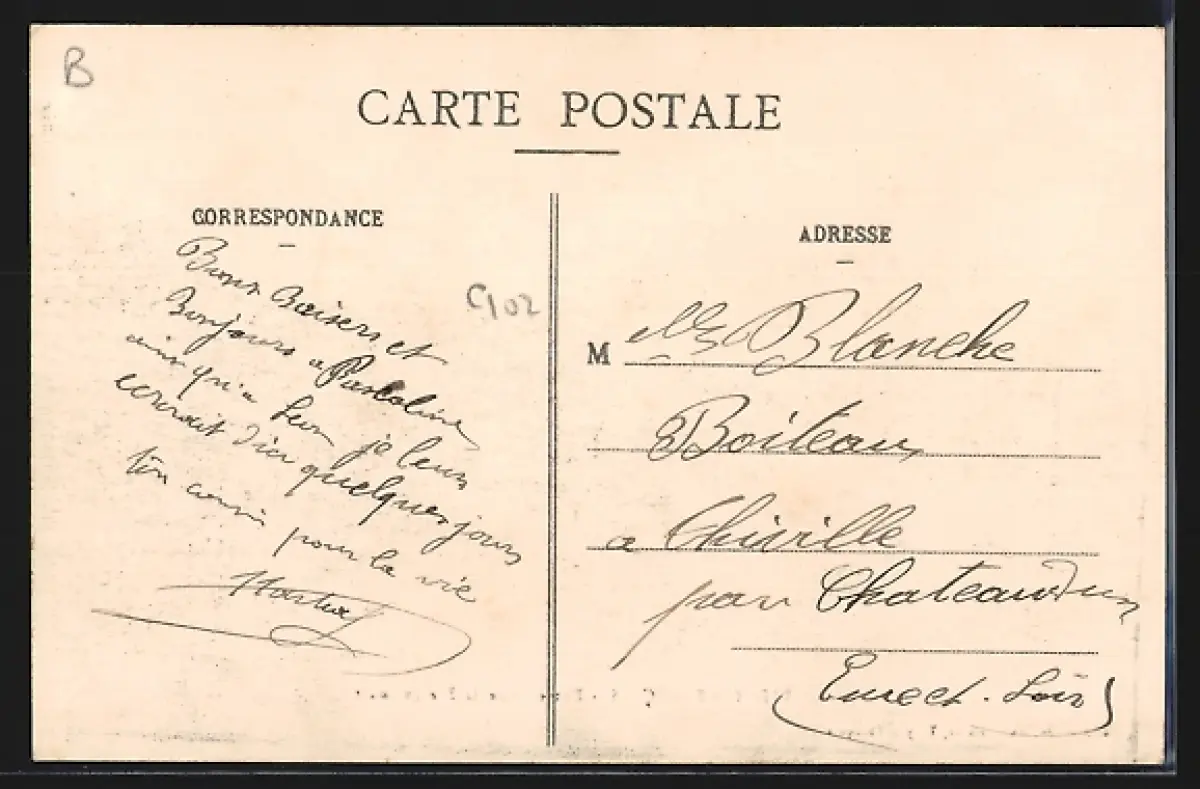 B
CARTE POSTALE
CORRESPONDANCE
Bons Baisers et
Bonjours a Pascaline
ainsi qu'a Leon je leurs
ecrirait d'ici quelques jours
ton cousin pour la vie
C102
ADRESSE
M elle Blanche
Boileau
a Thiville
par Chateaudun
(Eure et. Loir)